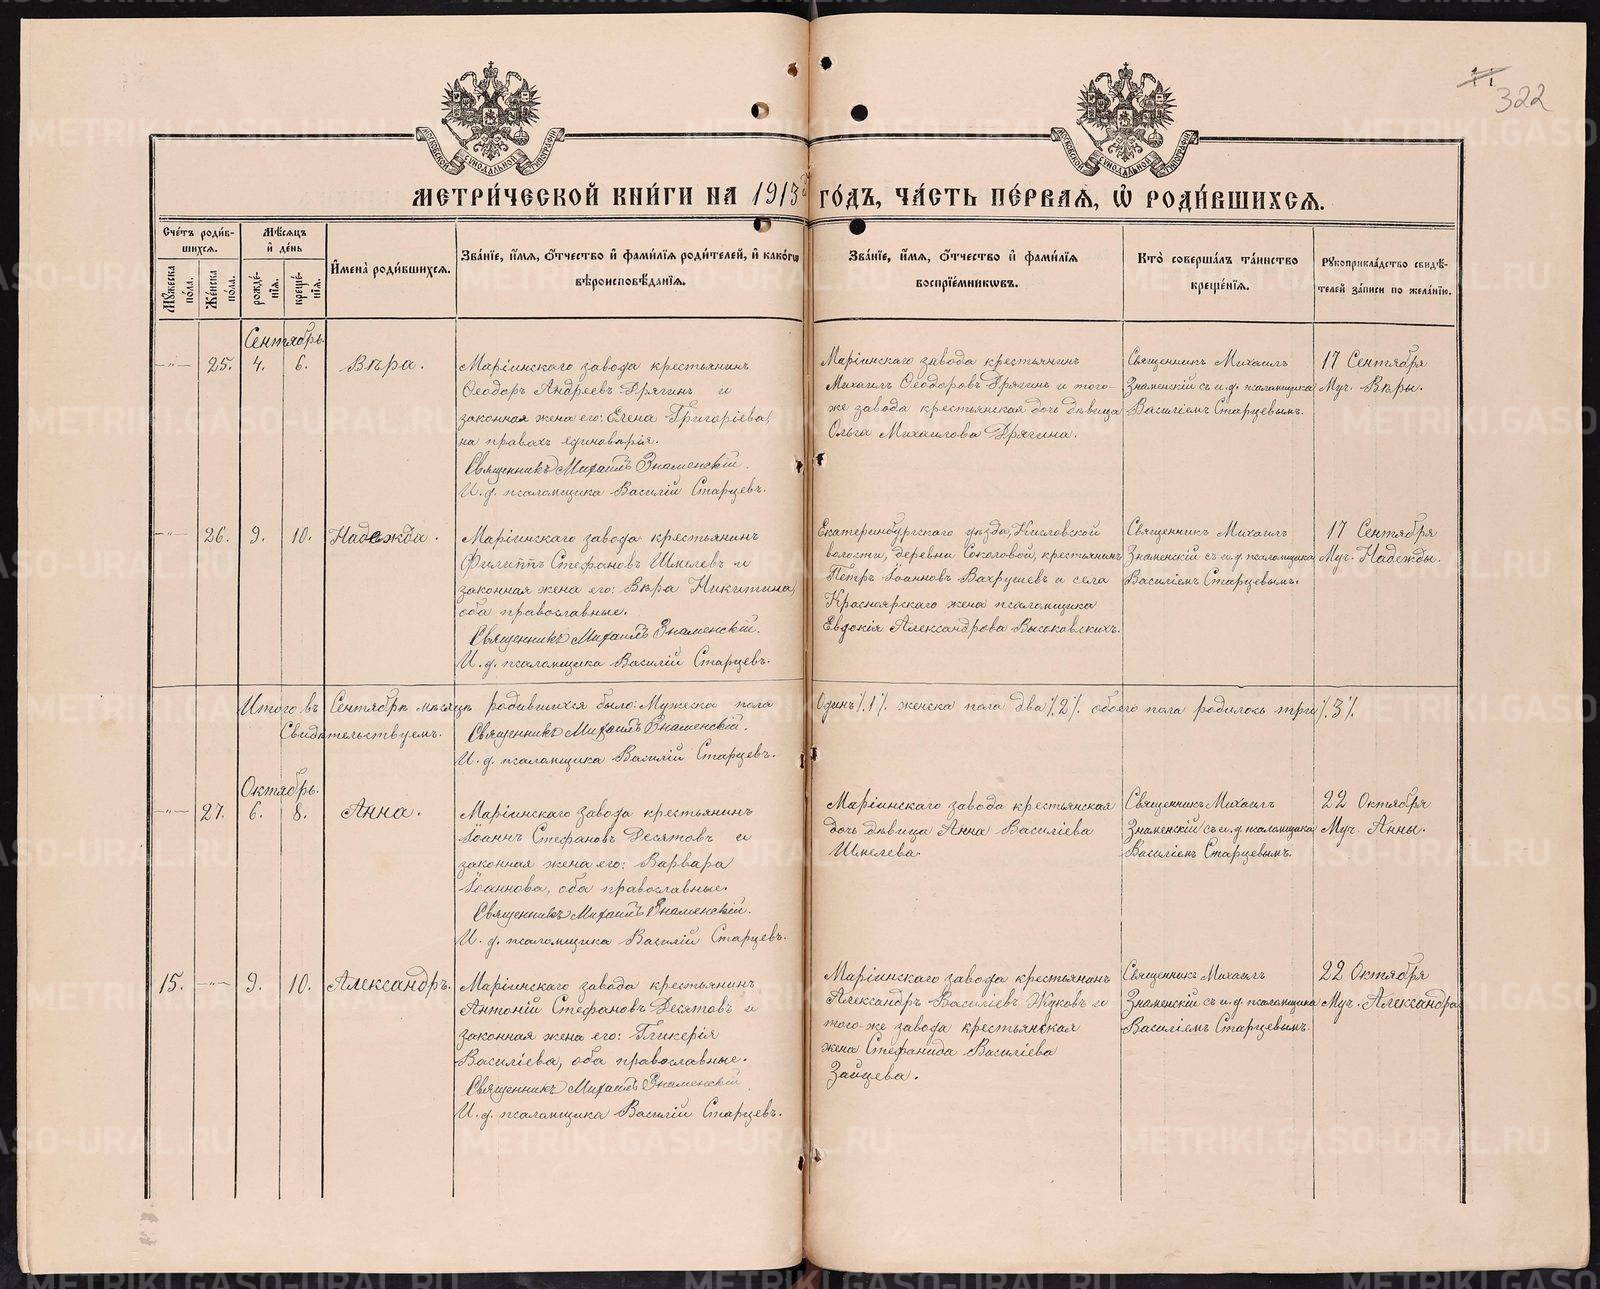 322
МОСКОВСКОЙ СѴНОДАЛЬНОЙ ТИПОГРАФІИ
МОСКОВСКОЙ СѴНОДАЛЬНОЙ ТИПОГРАФІИ
МЕТРИ́ЧЕСКОЙ КНИ́ГИ НА 1913й ГО́ДЪ, ЧА́СТЬ ПЕ́РВАЯ, Ѡ҆ РОДИ́ВШИХСЯ.
Сче́тъ роди́в-
шихся.
Мꙋжеска по́ла.
Же́нска по́ла.
Мѣ́сяцъ
и҆ де́нь
рожде́-
нїя.
креще́-
нїя.
И҆мена̀ роди́вшихся.
Зва́нїе, и҆́мя, ѻ҆́тчество и҆ фами́лїя роди́телей, и҆ како́гѡ
вѣроисповѣ́данїя.
Зва́нїе, и҆́мя, ѻ҆́тчество и҆ фами́лїя
воспрїе́мникѡвъ.
Кто̀ соверша́лъ та́инство
креще́нїя.
Рꙋкоприкла́дство свидѣ́-
телей за́писи по жела́нїю.
Сентябрь.
—"— 25. 4. 6. Вѣра.
Маріинскаго завода крестьянинъ
Ѳеодоръ Андреевъ Дрягинъ и
законная жена его: Елена Григоріева,
на правахъ единовѣрія.
Священникъ Михаилъ Знаменскій.
И. д. псаломщика Василій Старцевъ.
Маріинскаго завода крестьянинъ
Михаилъ Ѳеодоровъ Дрягинъ и того-
же завода крестьянская дочь дѣвица
Ольга Михаилова Дрягина.
Священникъ Михаилъ
Знаменскій съ и.д. псаломщика
Василіемъ Старцевымъ.
17 Сентября
Муч. Вѣры.
—"— 26. 9. 10. Надежда.
Маріинскаго завода крестьянинъ
Филиппъ Стефановъ Шмелевъ и
законная жена его: Вѣра Никитина,
оба православные.
Священникъ Михаилъ Знаменскій.
И. д. псаломщика Василій Старцевъ.
Екатеринбургскаго уѣзда, Кисловской
волости, деревни Соколовой, крестьянинъ
Петръ Іоанновъ Вахрушевъ и села
Красноярскаго жена псаломщика
Евдокія Александрова Высоковскихъ.
Священникъ Михаилъ
Знаменскій съ и.д. псаломщика
Василіемъ Старцевымъ.
17 Сентября
Муч. Надежды.
Итого въ Сентябрѣ мѣсяцѣ родившихся было: Мужеска пола Одинъ /.1/. женска пола два /.2/. обоего пола родилось три /.3/.
Свидѣтельствуемъ. Священникъ Михаилъ Знаменскій.
И. д. псаломщика Василій Старцевъ.
Октябрь.
—"— 27. 6. 8. Анна.
Маріинскаго завода крестьянинъ
Іоаннъ Стефановъ Десятовъ и
законная жена его: Варвара
Іоаннова, оба православные.
Священникъ Михаилъ Знаменскій.
И. д. псаломщика Василій Старцевъ.
Маріинскаго завода крестьянская
дочь дѣвица Анна Василіева
Шмелева.
Священникъ Михаилъ
Знаменскій съ и.д. псаломщика
Василіемъ Старцевымъ.
22 Октября
Муч. Анны.
15. —"— 9. 10. Александръ.
Маріинскаго завода крестьянинъ
Антоній Стефановъ Десятовъ и
законная жена его: Гликерія
Василіева, оба православные.
Священникъ Михаилъ Знаменскій.
И. д. псаломщика Василій Старцевъ.
Маріинскаго завода крестьянинъ
Александръ Василіевъ Жуковъ и
того-же завода крестьянская
жена Стефанида Василіева
Зайцева.
Священникъ Михаилъ
Знаменскій съ и.д. псаломщика
Василіемъ Старцевымъ.
22 Октября
Муч. Александра
METRIKI.GASO-URAL.RU